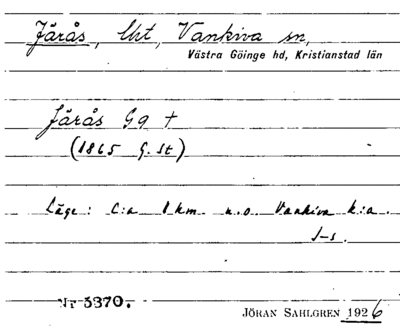 Järås, Uht, Vankiva sn,
Västra Göinge hd, Kristianstad län
Järås Gg +
(1865 G. St)
Läge: C:a 1 km n.o. Vankiva k:a.
J-s.
Nr 5370.
JÖRAN SAHLGREN 1926